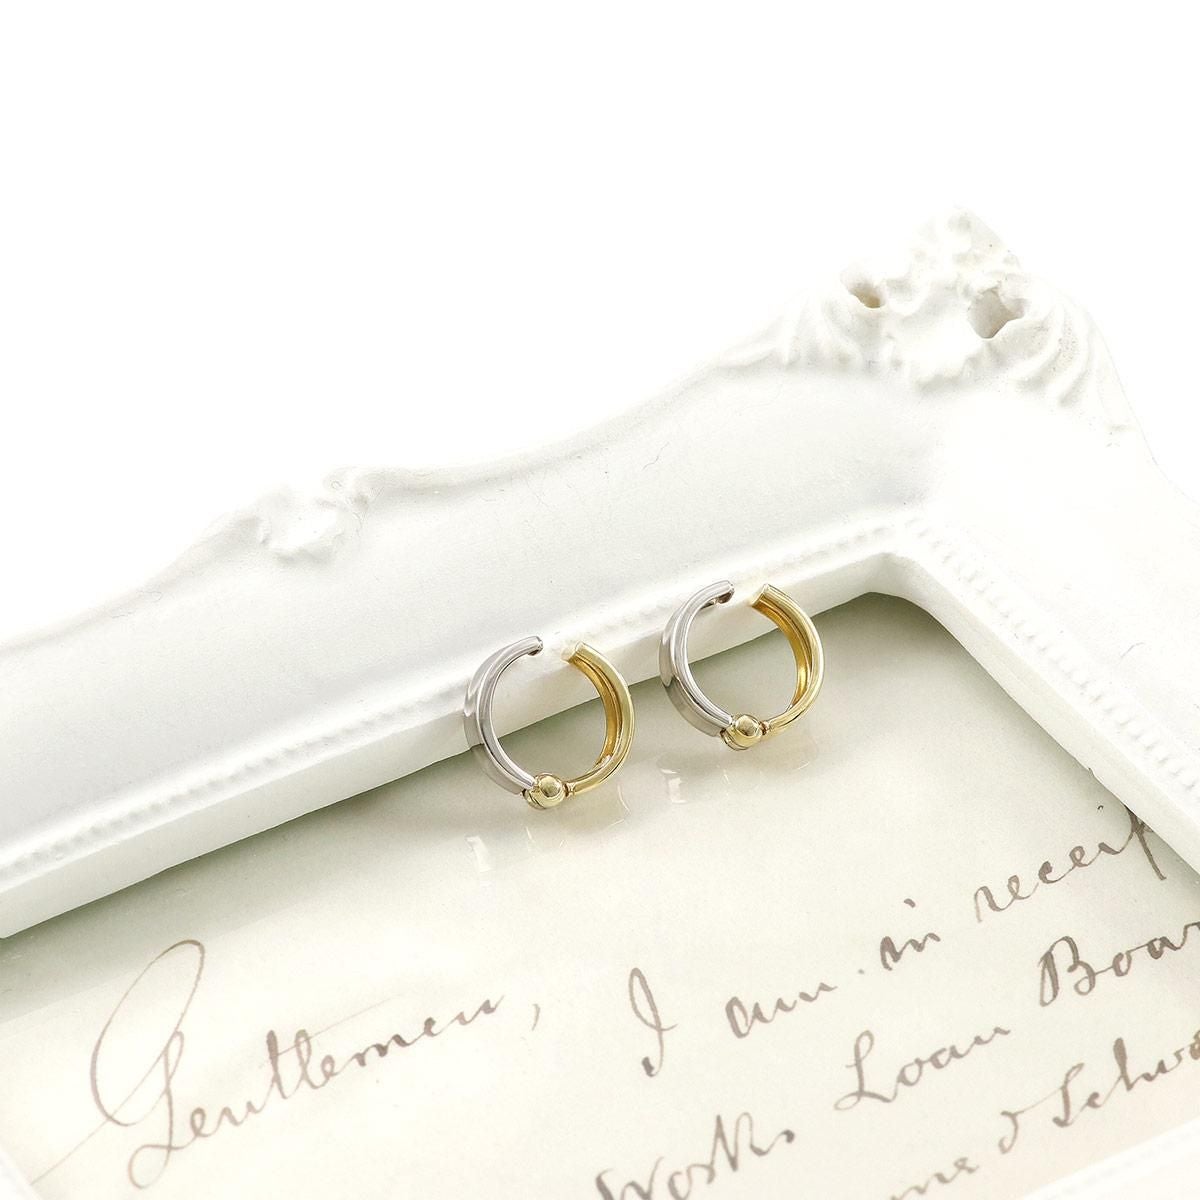 Gentlemen, I am in receip
Works Loan Boar